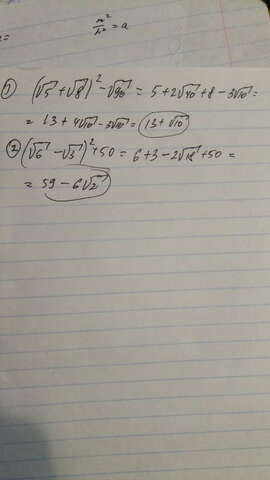 = m²/n² = a
1) (√5 + √8)² - √90 = 5 + 2√40 + 8 - 3√10 =
= 13 + 4√10 - 3√10 = 13 + √10
2) (√6 - √3)² + 50 = 6 + 3 - 2√18 + 50 =
= 59 - 6√2